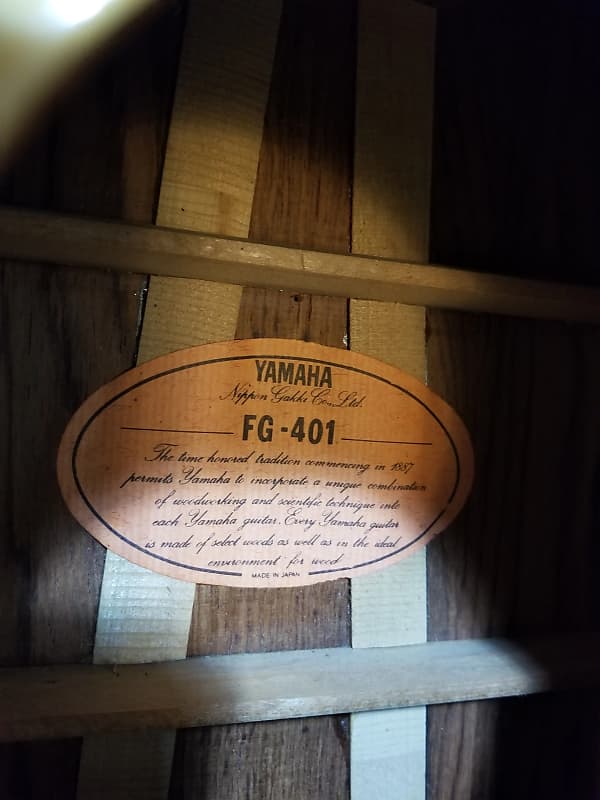 YAMAHA
Nippon Gakki Co., Ltd.
FG-401
The time honored tradition commencing in 1887
permits Yamaha to incorporate a unique combination
of woodworking and scientific technique into
each Yamaha guitar. Every Yamaha guitar
is made of select woods as well as in the ideal
environment for wood
MADE IN JAPAN